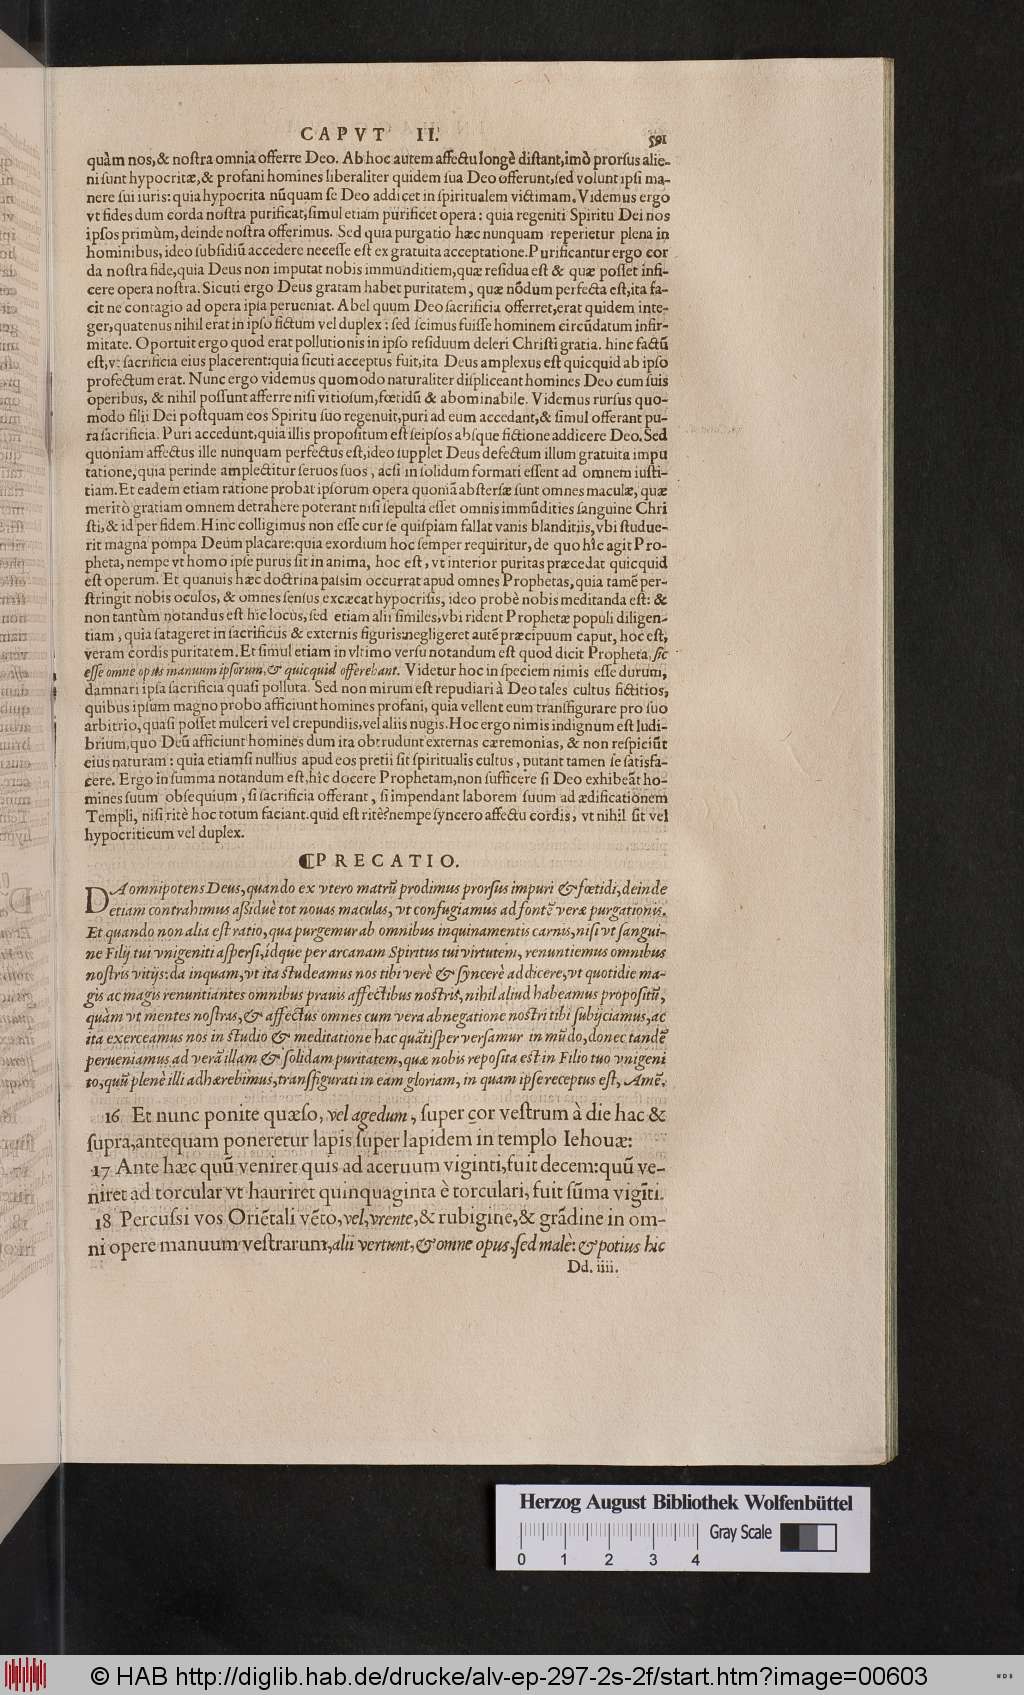 CAPVT II. 591
quàm nos,& noſtra omnia offerre Deo. Ab hoc autem affectu longè diſtant,imò prorſus alie-
ni ſunt hypocritæ,& profani homines liberaliter quidem ſua Deo offerunt,ſed volunt ipſi ma-
nere ſui iuris: quia hypocrita nūquam ſe Deo addicet in ſpiritualem victimam. Videmus ergo
vt fides dum corda noſtra purificat,ſimul etiam purificet opera: quia regeniti Spiritu Dei nos
ipſos primùm, deinde noſtra offerimus. Sed quia purgatio hæc nunquam reperietur plena in
hominibus, ideo ſubſidiū accedere neceſſe eſt ex gratuita acceptatione. Purificantur ergo cor
da noſtra fide,quia Deus non imputat nobis immunditiem,quæ reſidua eſt & quæ poſſet infi-
cere opera noſtra. Sicuti ergo Deus gratam habet puritatem, quæ nōdum perfecta eſt,ita fa-
cit ne contagio ad opera ipſa perueniat. Abel quum Deo ſacrificia offerret,erat quidem inte-
ger,quatenus nihil erat in ipſo fictum vel duplex: ſed ſcimus fuiſſe hominem circūdatum infir-
mitate. Oportuit ergo quod erat pollutionis in ipſo reſiduum deleri Chriſti gratia. hinc factū
eſt,vt ſacrificia eius placerent:quia ſicuti acceptus fuit,ita Deus amplexus eſt quicquid ab ipſo
profectum erat. Nunc ergo videmus quomodo naturaliter diſpliceant homines Deo cum ſuis
operibus, & nihil poſſunt afferre niſi vitioſum,fœtidū & abominabile. Videmus rurſus quo-
modo filii Dei poſtquam eos Spiritu ſuo regenuit,puri ad eum accedant,& ſimul offerant pu-
ra ſacrificia. Puri accedunt,quia illis propoſitum eſt ſeipſos abſque fictione addicere Deo. Sed
quoniam affectus ille nunquam perfectus eſt,ideo ſupplet Deus defectum illum gratuita impu
tatione,quia perinde amplectitur ſeruos ſuos, acſi in ſolidum formati eſſent ad omnem iuſti-
tiam. Et eadem etiam ratione probat ipſorum opera quoniā abſterſæ ſunt omnes maculæ, quæ
meritò gratiam omnem detrahere poterant niſi ſepulta eſſet omnis immūdities ſanguine Chri
ſti,& id per fidem. Hinc colligimus non eſſe cur ſe quiſpiam fallat vanis blanditiis, vbi ſtudue-
rit magna pompa Deum placare:quia exordium hoc ſemper requiritur, de quo hîc agit Pro-
pheta, nempe vt homo ipſe purus ſit in anima, hoc eſt, vt interior puritas præcedat quicquid
eſt operum. Et quanuis hæc doctrina paſsim occurrat apud omnes Prophetas, quia tamē per-
ſtringit nobis oculos, & omnes ſenſus excæcat hypocriſis, ideo probè nobis meditanda eſt: &
non tantùm notandus eſt hic locus, ſed etiam alii ſimiles,vbi rident Prophetæ populi diligen-
tiam, quia ſatageret in ſacrificiis & externis figuris:negligeret autē præcipuum caput, hoc eſt,
veram cordis puritatem. Et ſimul etiam in vltimo verſu notandum eſt quod dicit Propheta, ſic
eſſe omne opus manuum ipſorum,& quicquid offerebant. Videtur hoc in ſpeciem nimis eſſe durum,
damnari ipſa ſacrificia quaſi polluta. Sed non mirum eſt repudiari à Deo tales cultus fictitios,
quibus ipſum magno probo afficiunt homines profani, quia vellent eum transfigurare pro ſuo
arbitrio,quaſi poſſet mulceri vel crepundiis,vel aliis nugis. Hoc ergo nimis indignum eſt ludi-
brium,quo Deū afficiunt homines dum ita obtrudunt externas cæremonias, & non reſpiciūt
eius naturam: quia etiamſi nullius apud eos pretii ſit ſpiritualis cultus, putant tamen ſe ſatisfa-
cere. Ergo in ſumma notandum eſt,hîc docere Prophetam,non ſufficere ſi Deo exhibeāt ho-
mines ſuum obſequium, ſi ſacrificia offerant, ſi impendant laborem ſuum ad ædificationem
Templi, niſi ritè hoc totum faciant.quid eſt ritè?nempe ſyncero affectu cordis, vt nihil ſit vel
hypocriticum vel duplex.
¶PRECATIO.
DA omnipotens Deus,quando ex vtero matrū prodimus prorſus impuri & fœtidi,deinde
etiam contrahimus aſſiduè tot nouas maculas, vt confugiamus ad fontē veræ purgationis.
Et quando non alia eſt ratio,qua purgemur ab omnibus inquinamentis carnis,niſi vt ſangui-
ne Filij tui vnigeniti aſperſi,idque per arcanam Spiritus tui virtutem, renuntiemus omnibus
noſtris vitijs:da inquam,vt ita ſtudeamus nos tibi verè & ſyncerè addicere,vt quotidie ma-
gis ac magis renuntiantes omnibus prauis affectibus noſtris,nihil aliud habeamus propoſitū,
quàm vt mentes noſtras,& affectus omnes cum vera abnegatione noſtri tibi ſubijciamus,ac
ita exerceamus nos in ſtudio & meditatione hac quātiſper verſamur in mūdo,donec tandē
perueniamus ad verā illam & ſolidam puritatem,quæ nobis repoſita eſt in Filio tuo vnigeni
to,quū plenè illi adhærebimus,transfigurati in eam gloriam, in quam ipſe receptus eſt, Amē.
16 Et nunc ponite quæſo, vel agedum, ſuper cor veſtrum à die hac &
ſupra,antequam poneretur lapis ſuper lapidem in templo Iehouæ:
17 Ante hæc quū veniret quis ad aceruum viginti,fuit decem:quū ve-
niret ad torcular vt hauriret quinquaginta è torculari, fuit ſūma vigīti.
18 Percuſsi vos Oriētali vēto,vel,vrente,& rubigine,& grādine in om-
ni opere manuum veſtrarum,alii vertunt,& omne opus,ſed malè: & potius hic
Dd. iiii.
Herzog August Bibliothek Wolfenbüttel
Gray Scale
0 1 2 3 4
© HAB http://diglib.hab.de/drucke/alv-ep-297-2s-2f/start.htm?image=00603